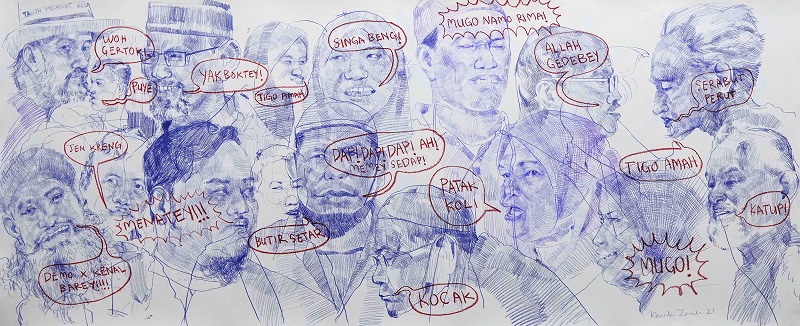 WOH
GERTOK!
PUYE
YAK BOKTEY!
TIGO AMAH
SINGA BENG!
MUGO NAMO RIMA!
ALLAH
GEDEBEY
SERABUT
PERUT
JEN KRENG
3MENATEY!!!
BUTIR SETAR
DAP! DAP! DAP! AH!
SEDAP!
PATAK
KOL!
TIGO AMAH
KATUP!
DEMO X KENAL
BAREY!!!!
KOCAK
MUGO!
21